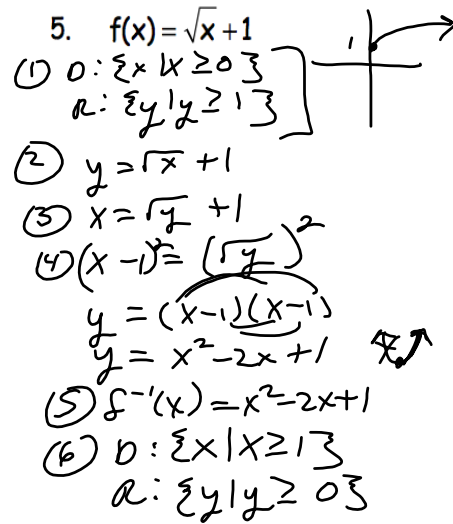 5. f(x) = √x + 1
① D: {x | x ≥ 0}
R: {y | y ≥ 1}
1
② y = √x + 1
③ x = √y + 1
④ (x - 1)² = (√y)²
y = (x-1)(x-1)
y = x² - 2x + 1
⑤ f⁻¹(x) = x² - 2x + 1
⑥ D: {x | x ≥ 1}
R: {y | y ≥ 0}